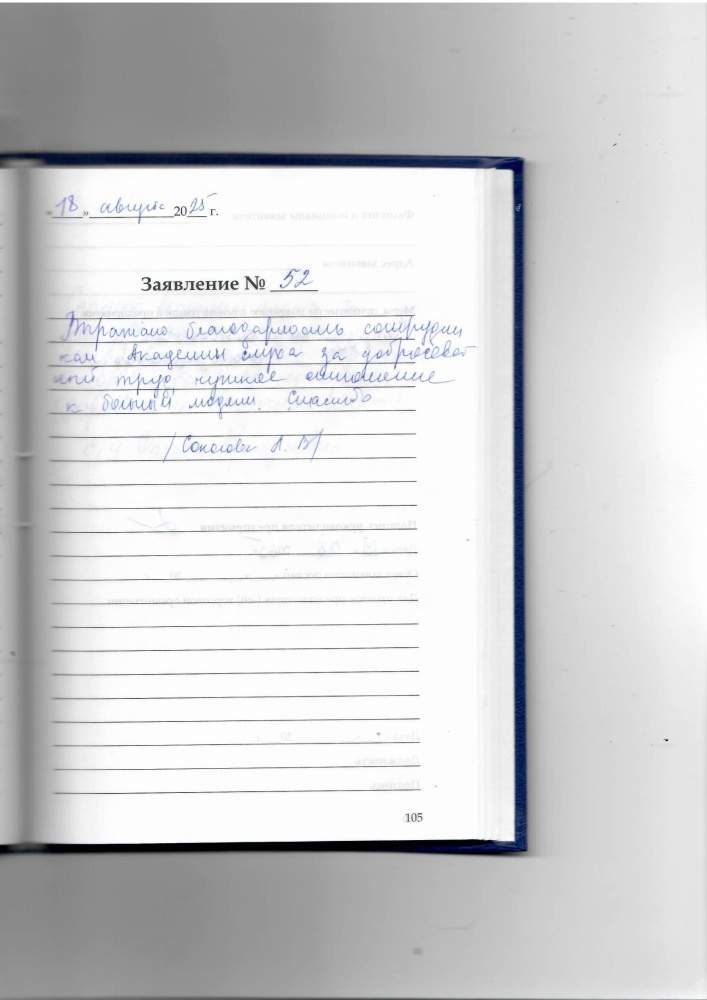 «18» августа 2025 г.
Заявление № 52
благодарность сотрудни
кам Академии слуха за добросовест
ный труд чуткое отношение
к больным людям. Спасибо
/Соколова А. В/
105